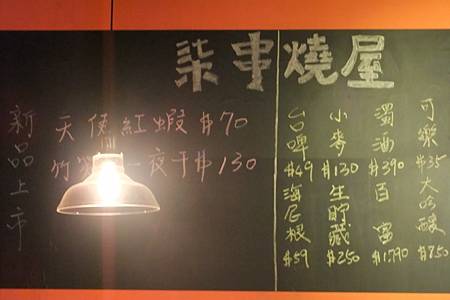 柒串燒屋
新品上市
天使紅蝦 $70
竹 一夜干 $130
可樂 $35
大吟釀 $750
濁酒 $390
百富 $1,790
小麥 $130
生貯藏 $250
台啤 $49
海尼根 $59